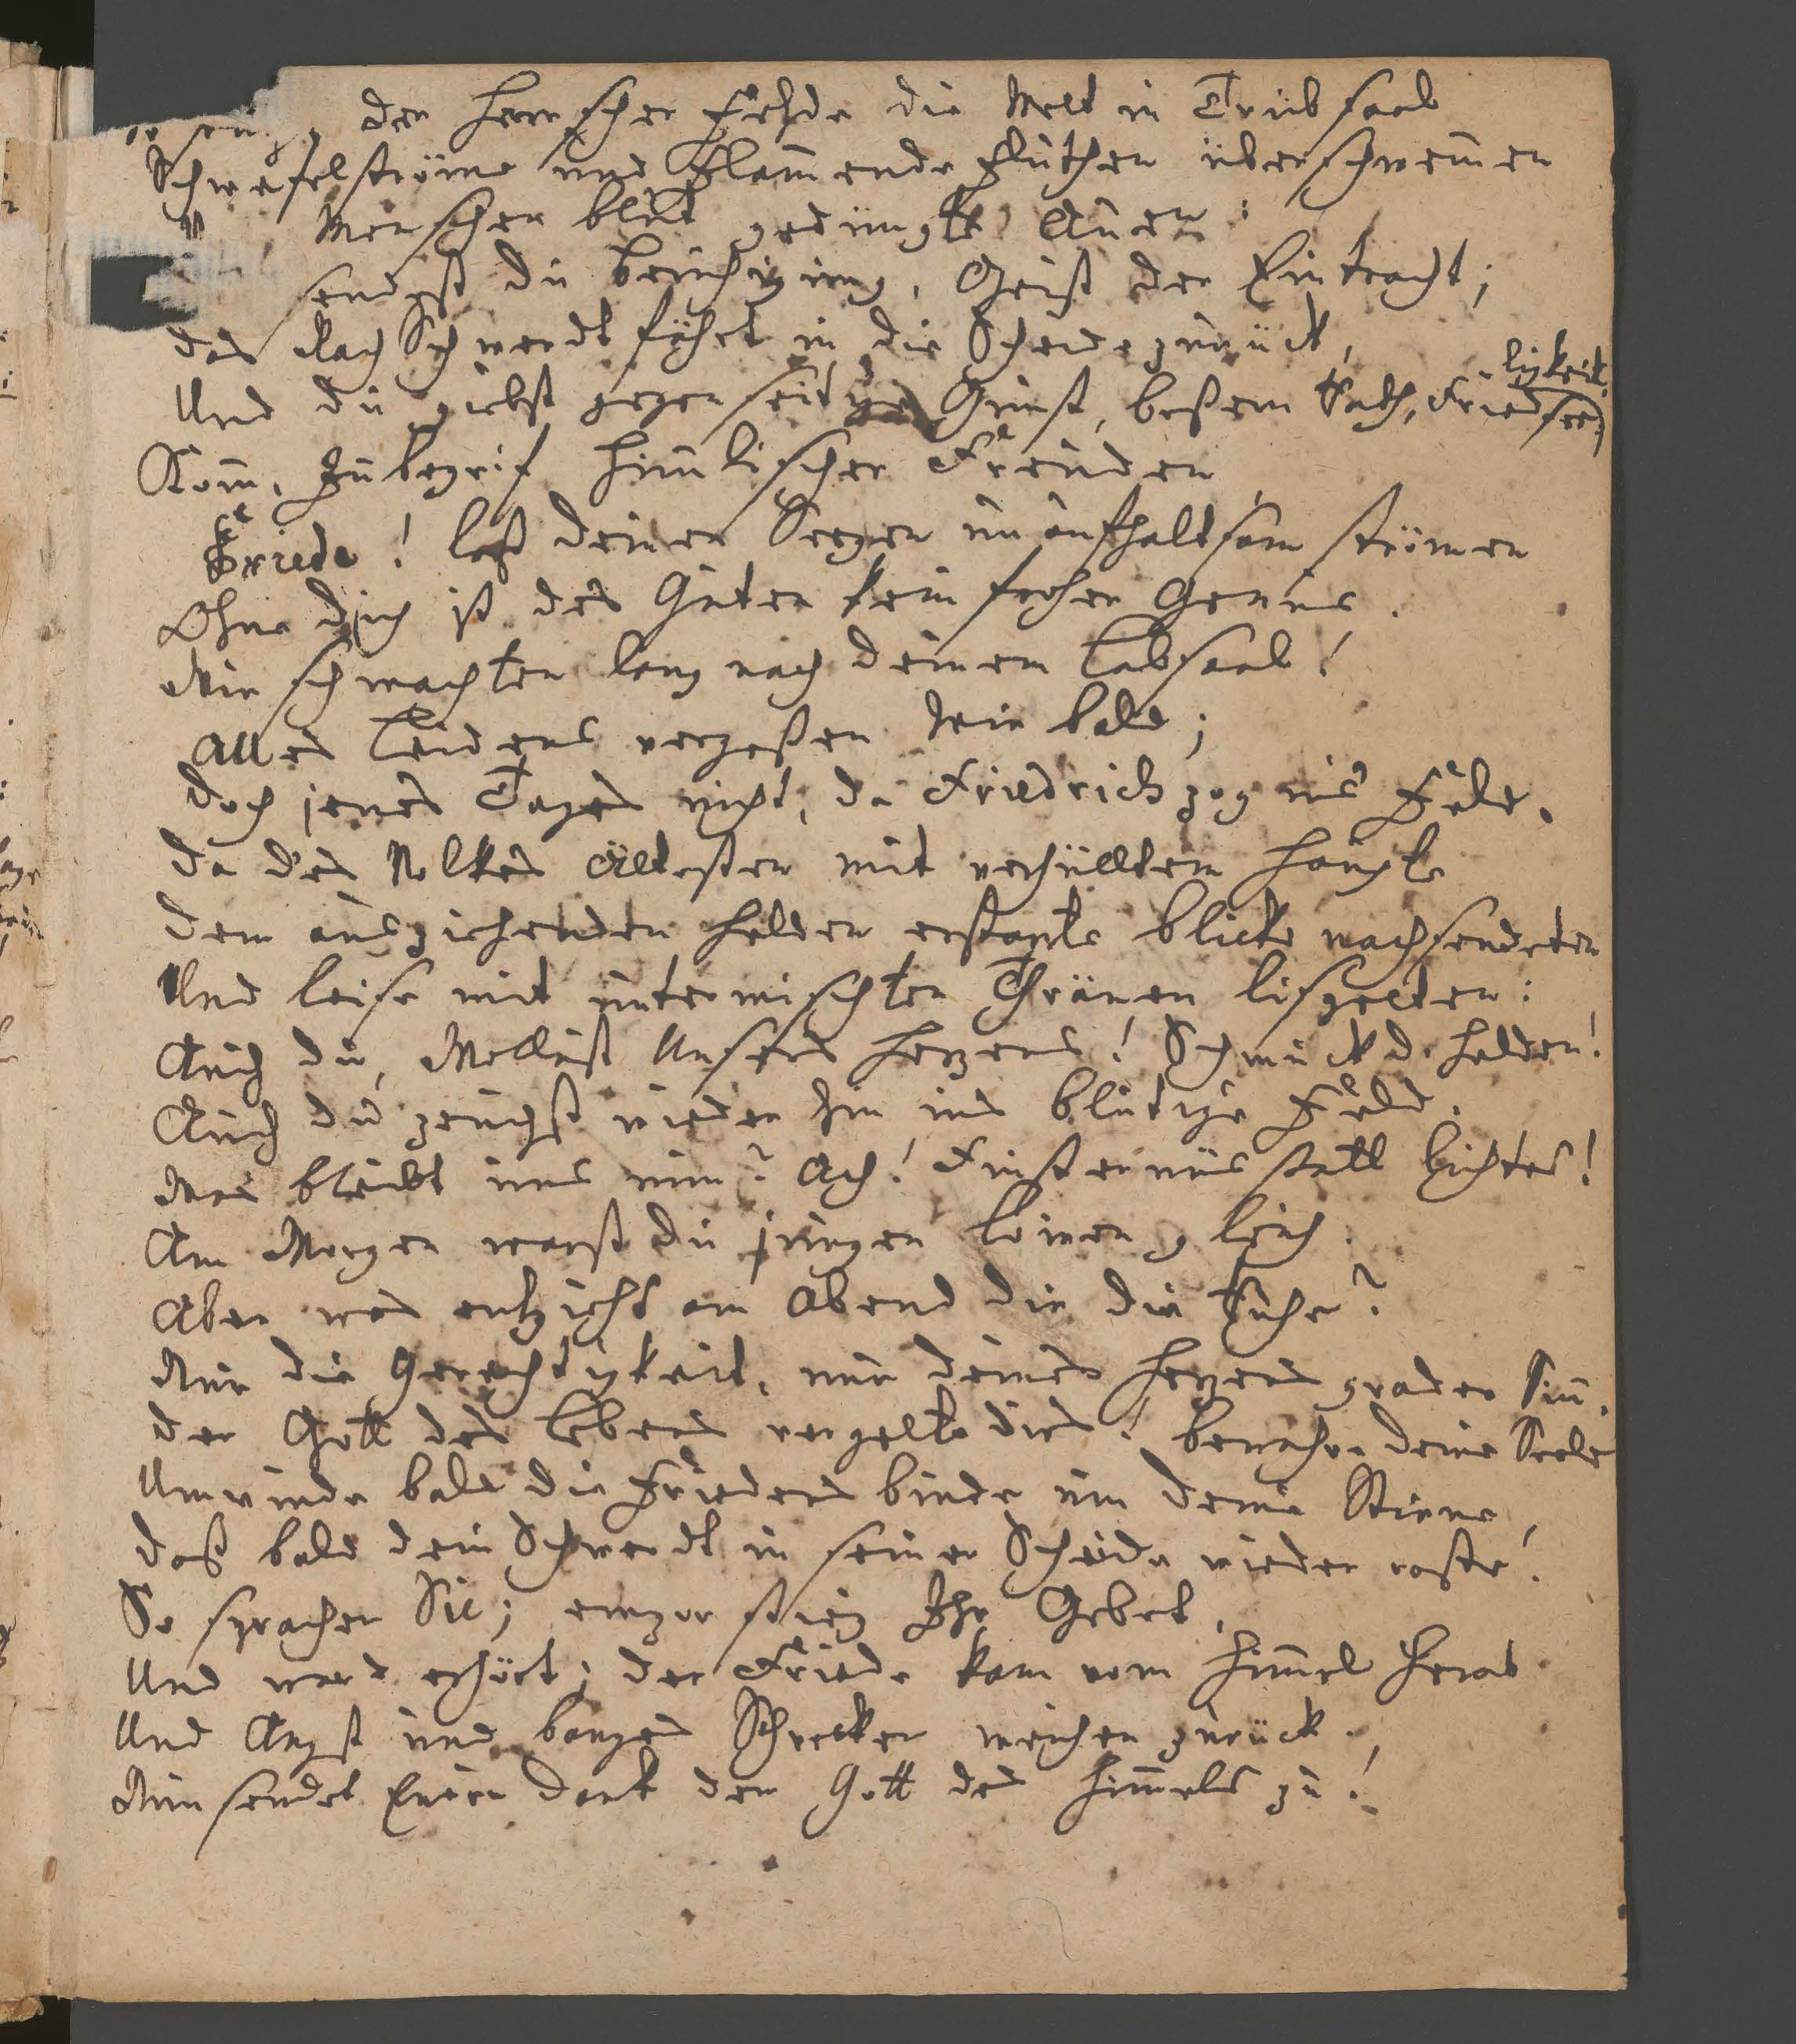 der Herrscher Fehde die Welt in Trübsaal
Schwefelströme und Flam̄ende Fluthen überschwem̄en
Menschen blut gedüngte Auen:
sendest du Beruhigung, Geist der Eintracht;
das Rach Schwerdt fährt in die Scheide zurück,
Und du giebst gegenseitge Gunst, beßern Rath, Friedsee,
ligkeit.
Kom̄, Inbegrif him̄lischer Freuden
Friede! laß deinen Seegen unaufhaltsam strömen
Ohne dich ist des Guten kein froher Genus.
Wir schmachten lang nach deinem Labsaal!
Alles Leidens vergeßen wir bald;
doch jenes Tages nicht, da Friedrich zog ins Feld.
da des Volkes Ältesten mit verhülltem Haupte
dem ausziehenden Helden erstarte Blicke nachsendeten
Und leise mit untermischten Thränen lispelten:
Auch du, Wollust Unsers Herzens! Schmuck d. Helden!
Auch du zeuchst wieder hin ins blutige Feld.
Was bleibt uns nun? Ach! Finsternüs statt Lichtes!
Am Morgen warst du jungen Löwen gleich.
Aber was entzieht am Abend dir die Ruhe?
Nur die Gerechtigkeit, nur deines Herzens grader Sin̄.
der Gott des Lebens vergelte dirs! bewahre deine Seele
Umwinde bald die Friedens binde um deine Stirne,
daß bald dein Schwerdt in seiner Scheide wieder raste!
So sprachen Sie; empor stieg Ihr Gebet,
Und ward erhört; der Friede kam vom Him̄el herab
Und Angst und banges Schrecken weichen zurück.
Nun sendet Euren Dank dem Gott des Him̄els zu!